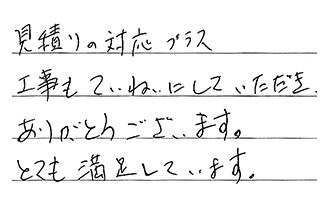 見積りの対応プラス
工事もていねいにしていただき、
ありがとうございます。
とても満足しています。